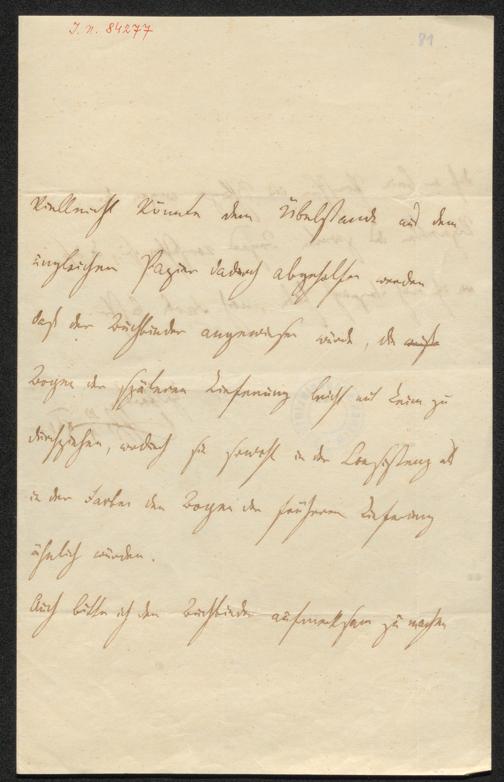 J. N. 84277
81
Vielleicht könnte dem Übelstande mit dem
ungleichen Papier dadurch abgeholfen werden
daß der Buchbinder angewiesen würde, die
Bogen der späteren Lieferung leicht mit Leim zu
durchziehen, wodurch sie sowohl in der Consistenz als
in der Farbe den Bogen der früheren Lieferung
ähnlich würden.
Auch bitte ich den Buchbinder aufmerksam zu machen